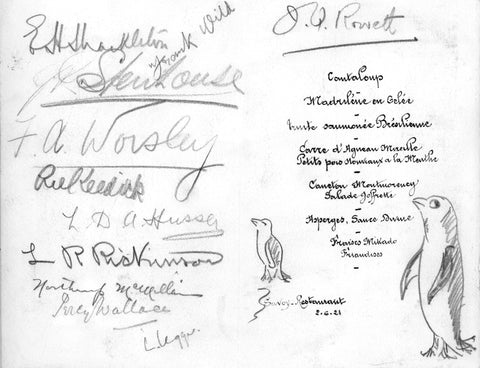 E H Shackleton
Frank Wild
J R Stenhouse
F. A. Worsley
L D A Hussey
L R Rickinson
Percy Wallace
J. Q. Rowett
Cantaloup
Madrilène en Gelée
Truite saumonée Brésilienne
Carre d'Agneau Mireille
Petits pois nouveaux a la Menthe
Caneton Montmorency
Salade
Asperges, Sauce Divine
Fraises Mikado
Friandises
Savoy-Restaurant
2-6-21